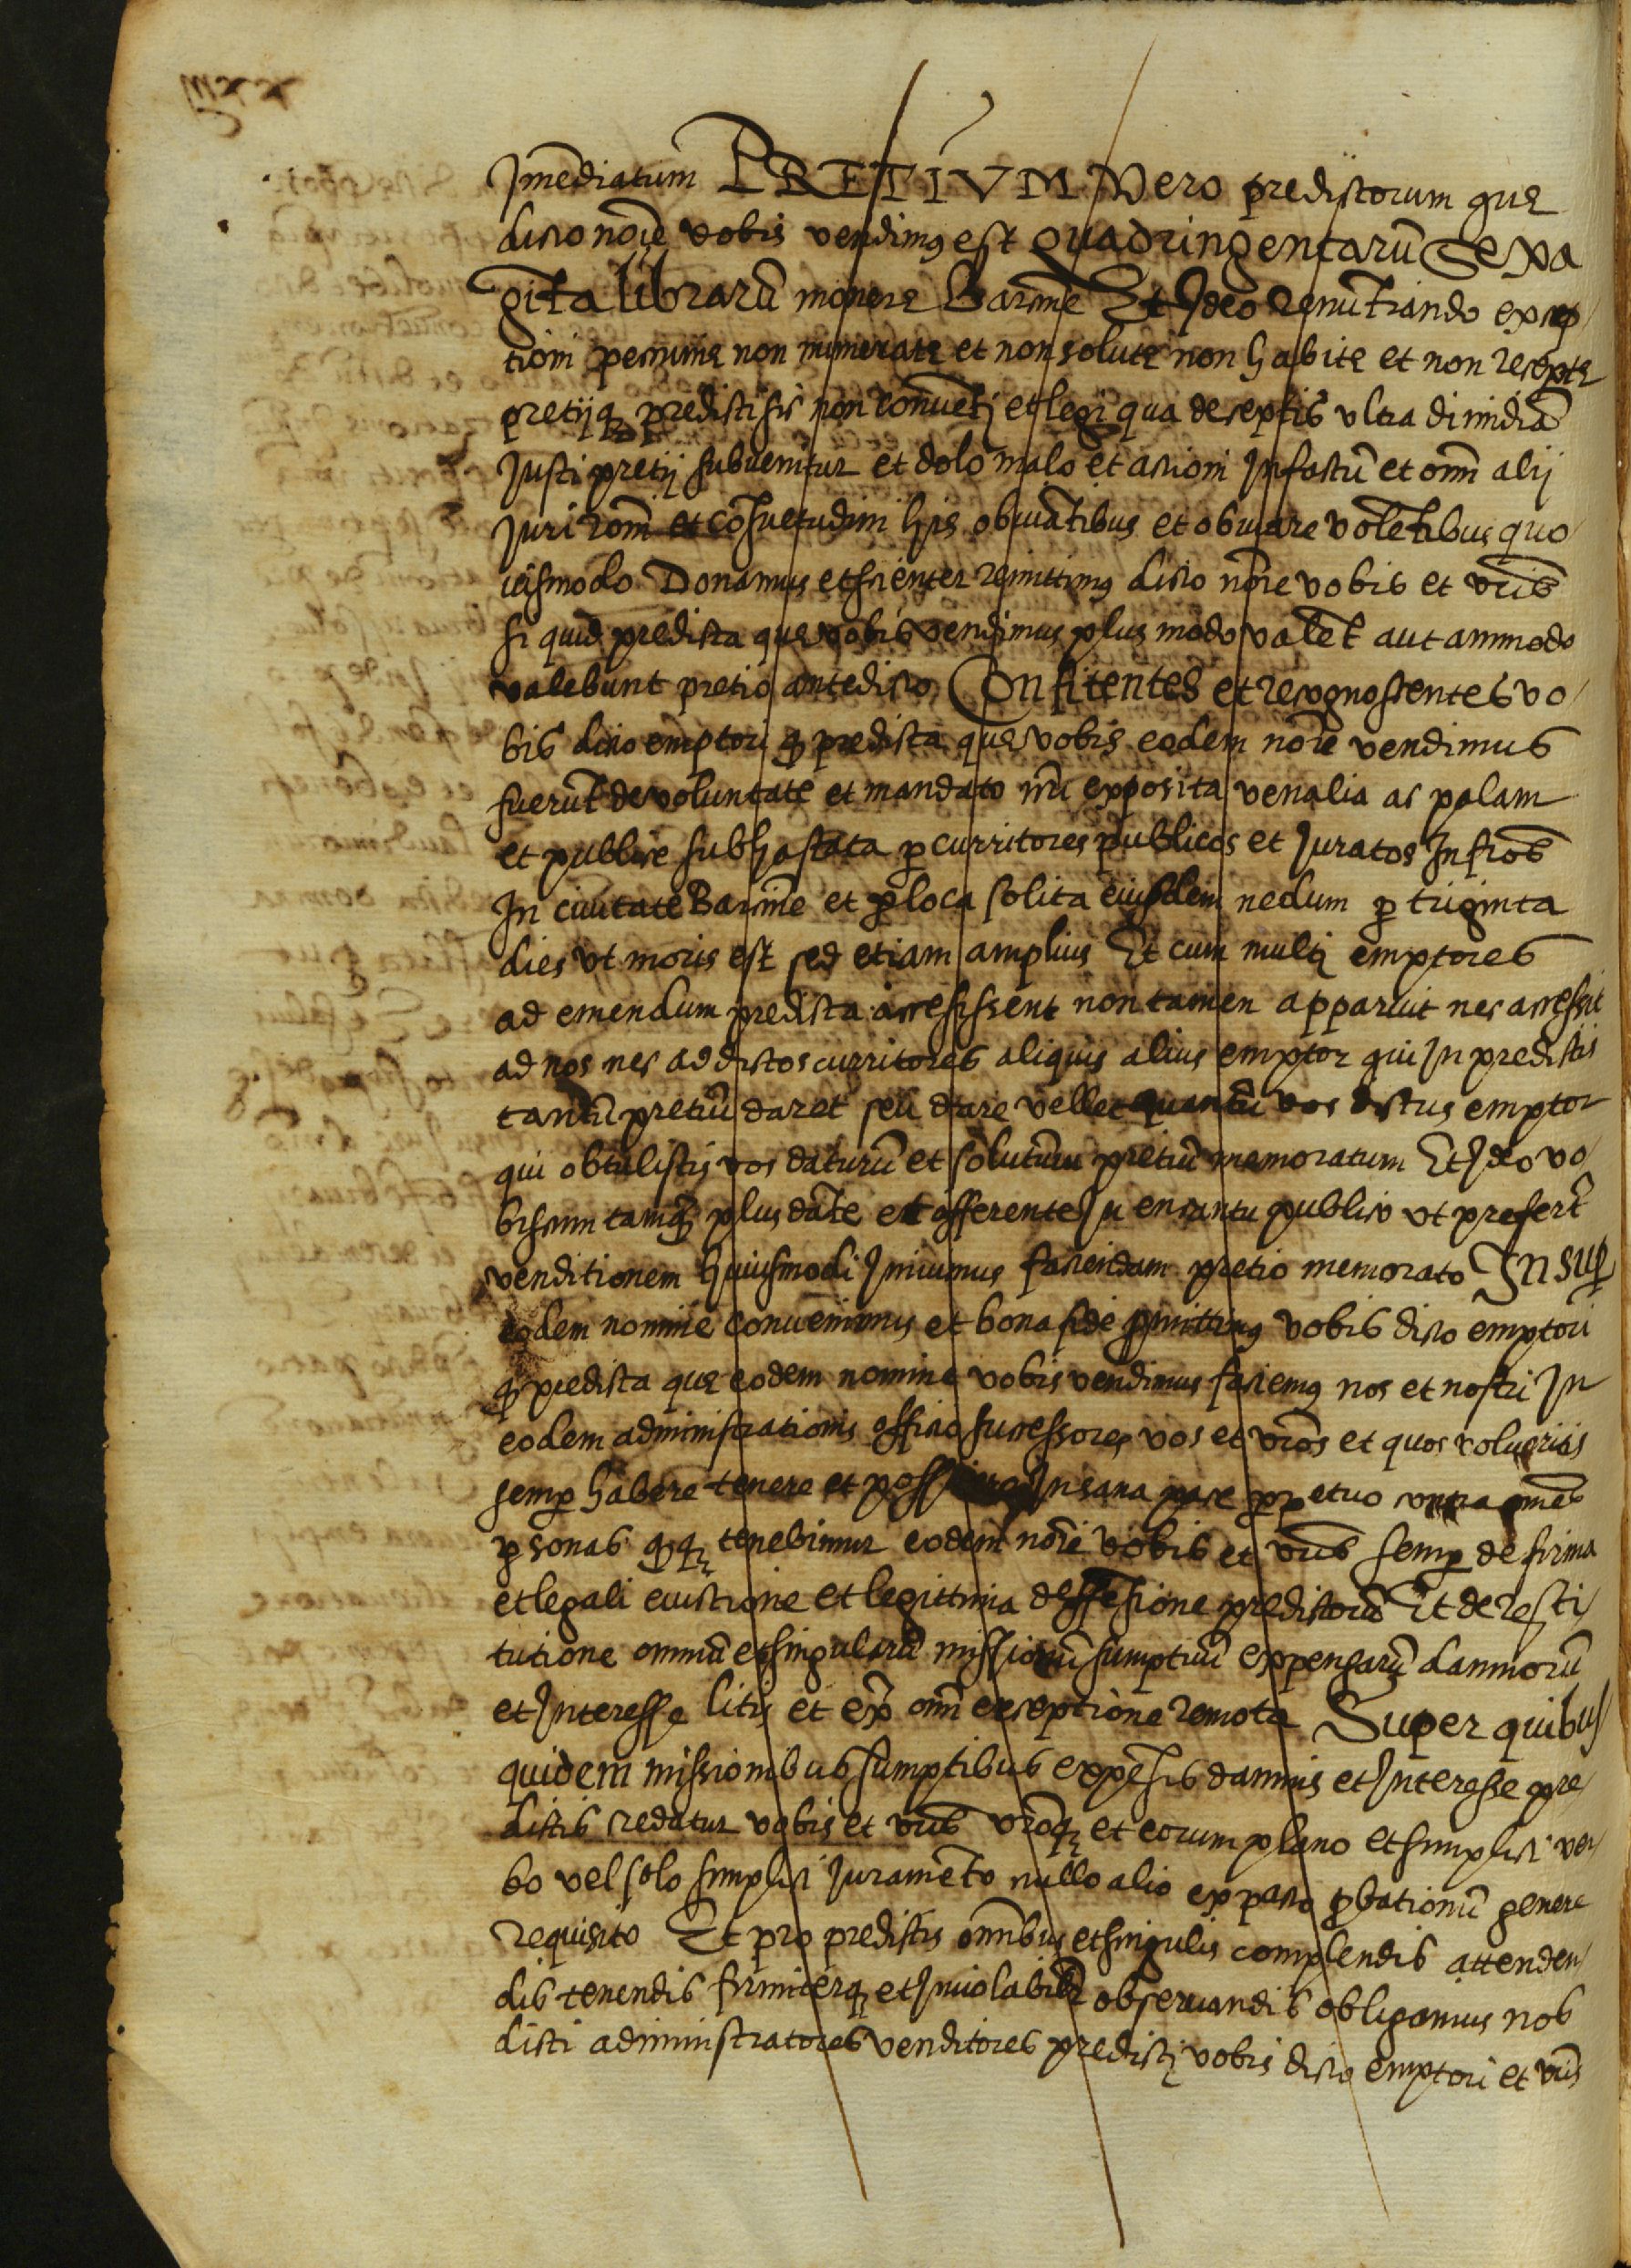 Jmediatum PRETIVM Vero predictorum que
dicto noīe vobis vendimꝰ est quadringentarū Sexa
gīta librarū monete Barcīne Et Ideo renuntiando excep
tioni pecunie non numerate et non solute non habite et non recepte
pretijqꝫ predicti sic non convēti et legi qua deceptis vltra dimidiā
Justi pretij subvenitur et dolo malo et actioni Jn factū et omī alij
Juri rōni et cōsuetudini his obviātibus et obviare volētibus quo
vismodo Donamus et scienter remittimꝰ dicto nōie vobis et vr̄is
si quid predicta que vobis vendimus plus modo valēt aut ammodo
valebunt pretio antedicto Confitentes et recognoscentes vo
bis dicto emptori ꝙ predicta que vobis eodem nōie vendimus
fuerūt de voluntate et mandato nr̄i exposita venalia ac palam
et publice subhastata ꝑ curritores publicos et Juratos Jnfrōs
Jn civitate Barcīne et ꝑ loca solita eiusdem nedum ꝑ triginta
dies vt moris est sed etiam amplius Et cum multi emptores
ad emendum predicta accesissent non tamen apparuit nec accessit
ad nos nec ad dictos curritores aliquis alius emptor qui Jn predictis
tantū pretiū daret seu dare vellet quantū vos dictus emptor
qui obtulistis vos daturū et soluturū pretiū memoratum Et Jdeo vo
biscum tamqꝫ plus dāte et offerente Jn encantu publico vt prefert̄
venditionem huiusmodi Jnivimus faciendam pretio memorato Jnsuꝑ
eodem nomine convenimus et bona fide ꝓmittimꝰ vobis dicto emptori
ꝙ predicta que eodem nomine vobis vendimus faciemꝰ nos et nostri Jn
eodem administrationis officio successores vos et vr̄os et quos volueritis
semꝑ habere tenere et possidere Jn sana pace ꝑpetuo contra omēs
ꝑsonas ꝙqꝫ tenebimur eodem nōie vobis et vr̄is semꝑ de firma
et legali evictione et legittima deffesione predictorū Et de resti
tutione omniū et singularū missionū sumptuū expensarū damnorū
et Jnteresse litis et ex̄ omī exceptione remota Super quibus
quidem missionibus sumptibus expēsis damnis et Jnteresse pre
dictis credatur vobis et vr̄is vr̄oqꝫ et eorum plano et simplici ver
bo vel solo simplici Juramēto nullo alio ex pacto ꝓbationū genere
requisito Et pro predictis omībus et singulis complendis attenden
dis tenendis firmiterqꝫ et Jnviolabilr̄ observandis obligamus nos
dicti administratores venditores predicti vobis dicto emptori et vr̄is